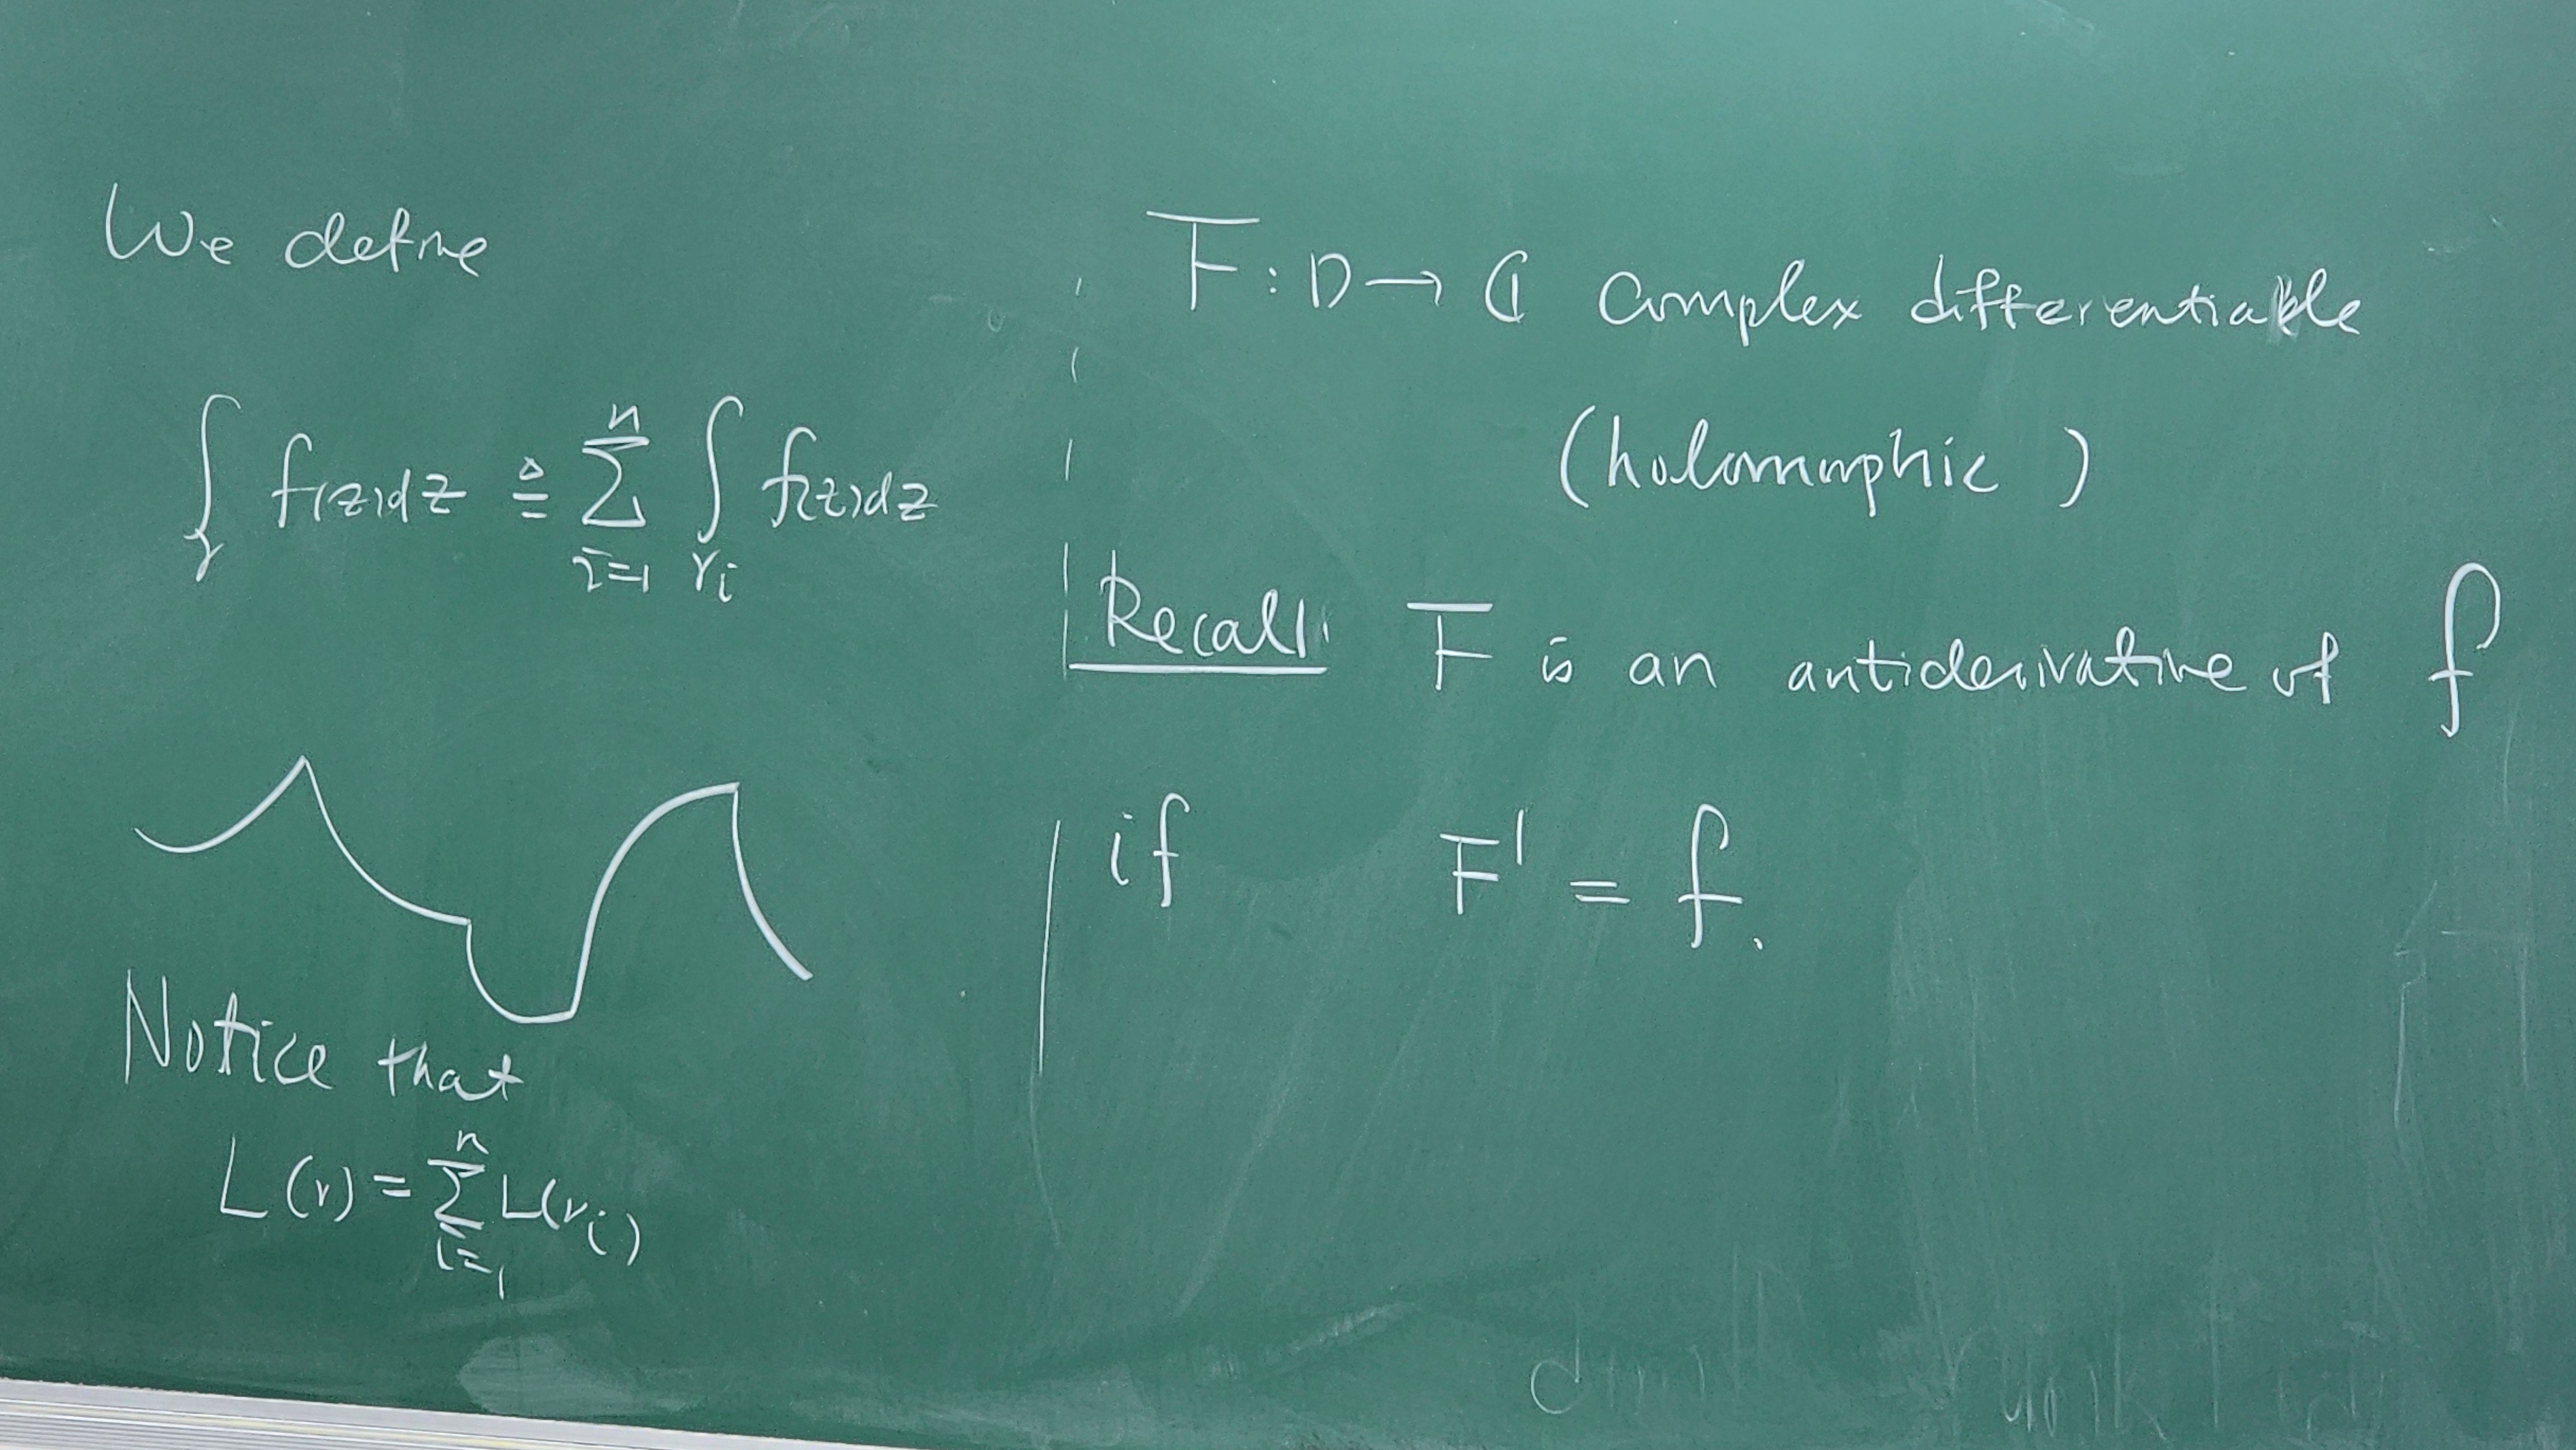 We define
∫_γ f(z)dz ≜ ∑_{i=1}^{n} ∫_{γ_i} f(z)dz
Notice that
L(γ) = ∑_{i=1}^{n} L(γ_i)
F : D → ℂ complex differentiable
(holomorphic)
Recall: F is an antiderivative of f
if F' = f.